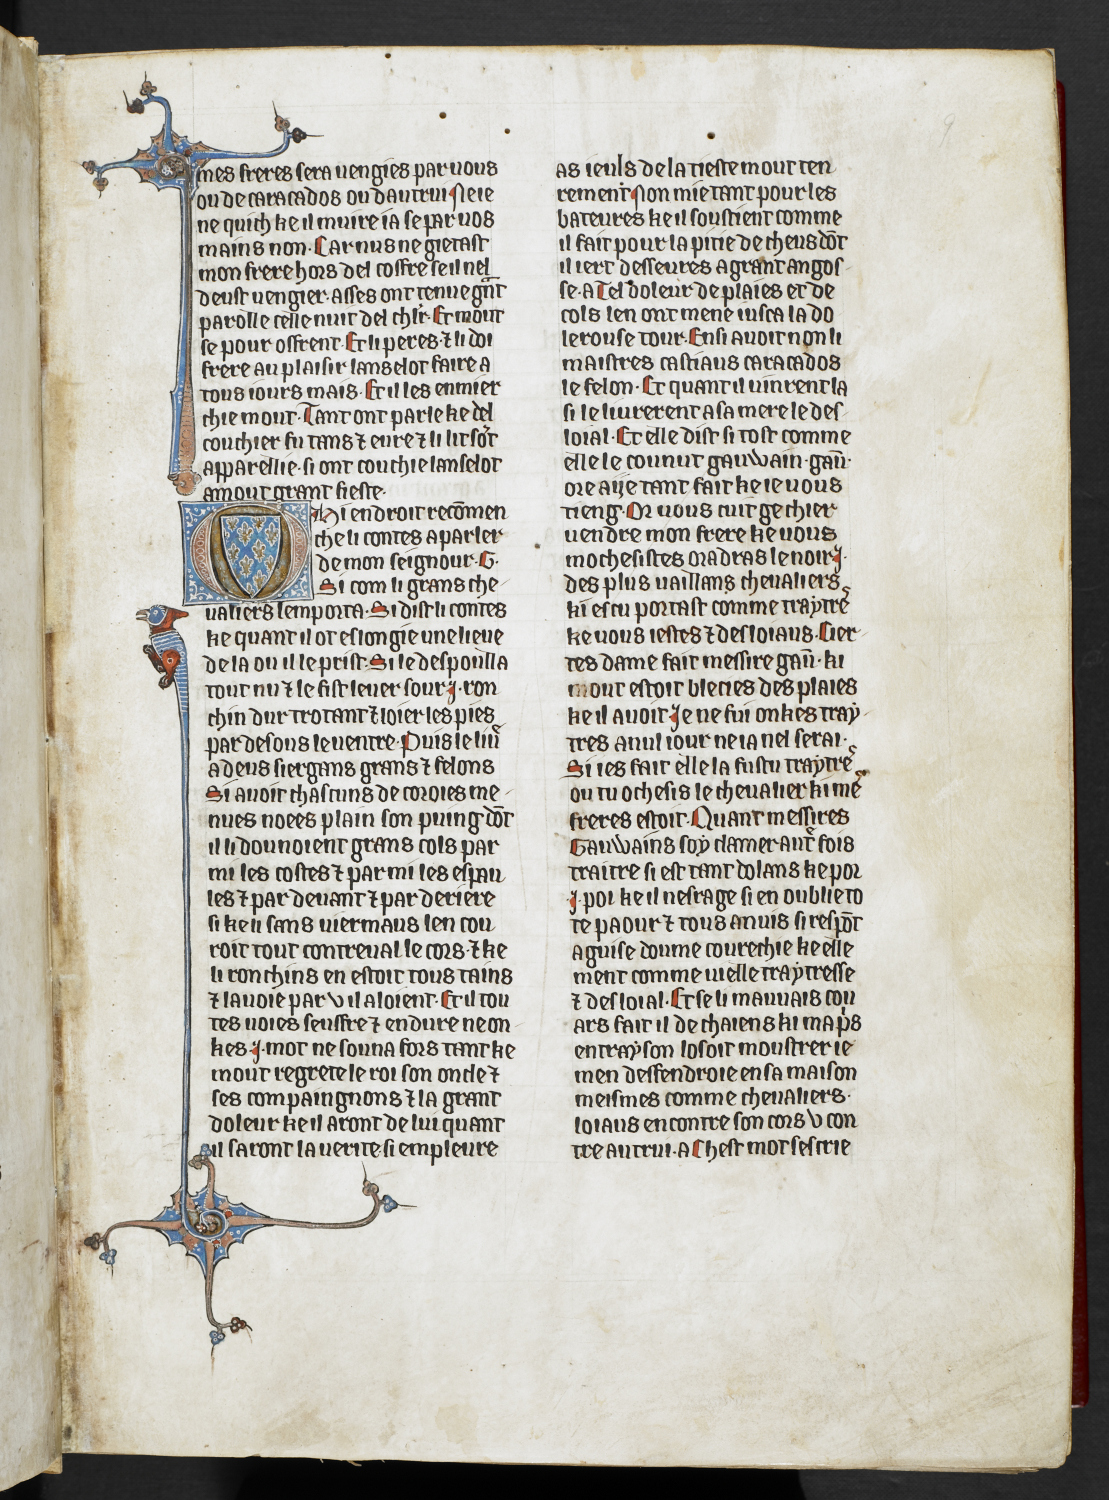 9
mes freres sera uengies par uous
ou de caracados ou dautrui Ne ie
ne quich ke il muire ia se par uos
mains non. Car nus ne gietast
mon frere hors del coffre se il nel
deust uengier. asses ont tenue gñt
parolle celle nuit del chlr. Et mout
se pour offrent. Et li peres ⁊ li doi
frere au plaisir lanselot faire a
tous iours mais. Et il les enmier
chie mout. Tant ont parle ke del
couchier fu tans ⁊ eure ⁊ li lit sōt
apparellie. si ont couchie lanselot
a mout grant fieste.
Chi endroit recōmen
che li contes a parler
de mon seignour. G.
Si com li grans che-
ualiers lemporta. Si dist li contes
ke quant il ot eslongie une lieue
de la ou il le prist. Si le despoulla
tout nu ⁊ le fist leuer sour .j. ron
chin dur trotant ⁊ loier les pies
par desous le uentre. Puis le liu͛
a deus siergans grans ⁊ felons
Si auoit chascuns de coroies me-
nues noees plain son puing dōt
il li dounoient grans cols par
mi les costes ⁊ par mi les espau
les ⁊ par deuant ⁊ par deriere
si ke li sans uiermaus len cou
roit tout contreual le cors. ⁊ ke
li ronchins en estoit tous tains
⁊ la uoie par v il aloient. Et il tou
tes uoies seuffre ⁊ endure ne on-
kes .j. mot ne souna fors tant ke
mout regrete le roi son oncle ⁊
ses compaingnons ⁊ la grant
doleur ke il aront de lui quant
il saront la uerite. si em pleure
as ieuls de la tieste mout ten
rement Non mie tant pour les
bateures ke il soustient comme
il fait pour la pitie de cheus dōt
il iert desseures a grant angos-
se. A Tel doleur de plaies et de
cols len ont mene iusca la do
lerouse tour. Ensi auoit non li
maistres castiaus caracados
le felon. Et quant il uinrent la
si le liurerent a sa mere le des-
loial. Et elle dist si tost comme
elle le counut gauwain. gau̅.
ore ai ie tant fait ke ie uous
tieng. Or uous cuit ge chier
uendre mon frere ke uous
mochesistes madras le noir .j.
des plus uaillans cheualiers
ki escu portast comme traytre͛
ke uous iestes ⁊ desloiaus. Cier-
tes dame fait messire gau̅. ki
mout estoit blecies des plaies
ke il auoit Je ne fui onkes tray-
tres a nul iour ne ia nel serai.
Si ies fait elle la fus tu traytre͛
ou tu ochesis le cheualier ki me͛
freres estoit. Quant messires
Gauwains soy clamer aut͛ fois
traitre si est tant dolans ke por
.j. poi ke il nesrage si en oublie to
te paour ⁊ tous anuis si respōt
a guise doume courechie ke elle
ment comme uielle traytresse
⁊ desloial. Et se li mauuais cou
ars fait il de chaiens ki ma p̄s
en trayson losoit moustrer ie
men deffendroie en sa maison
meismes comme cheualiers.
loiaus encontre son cors v con
tre autrui. A Chest mot sescrie